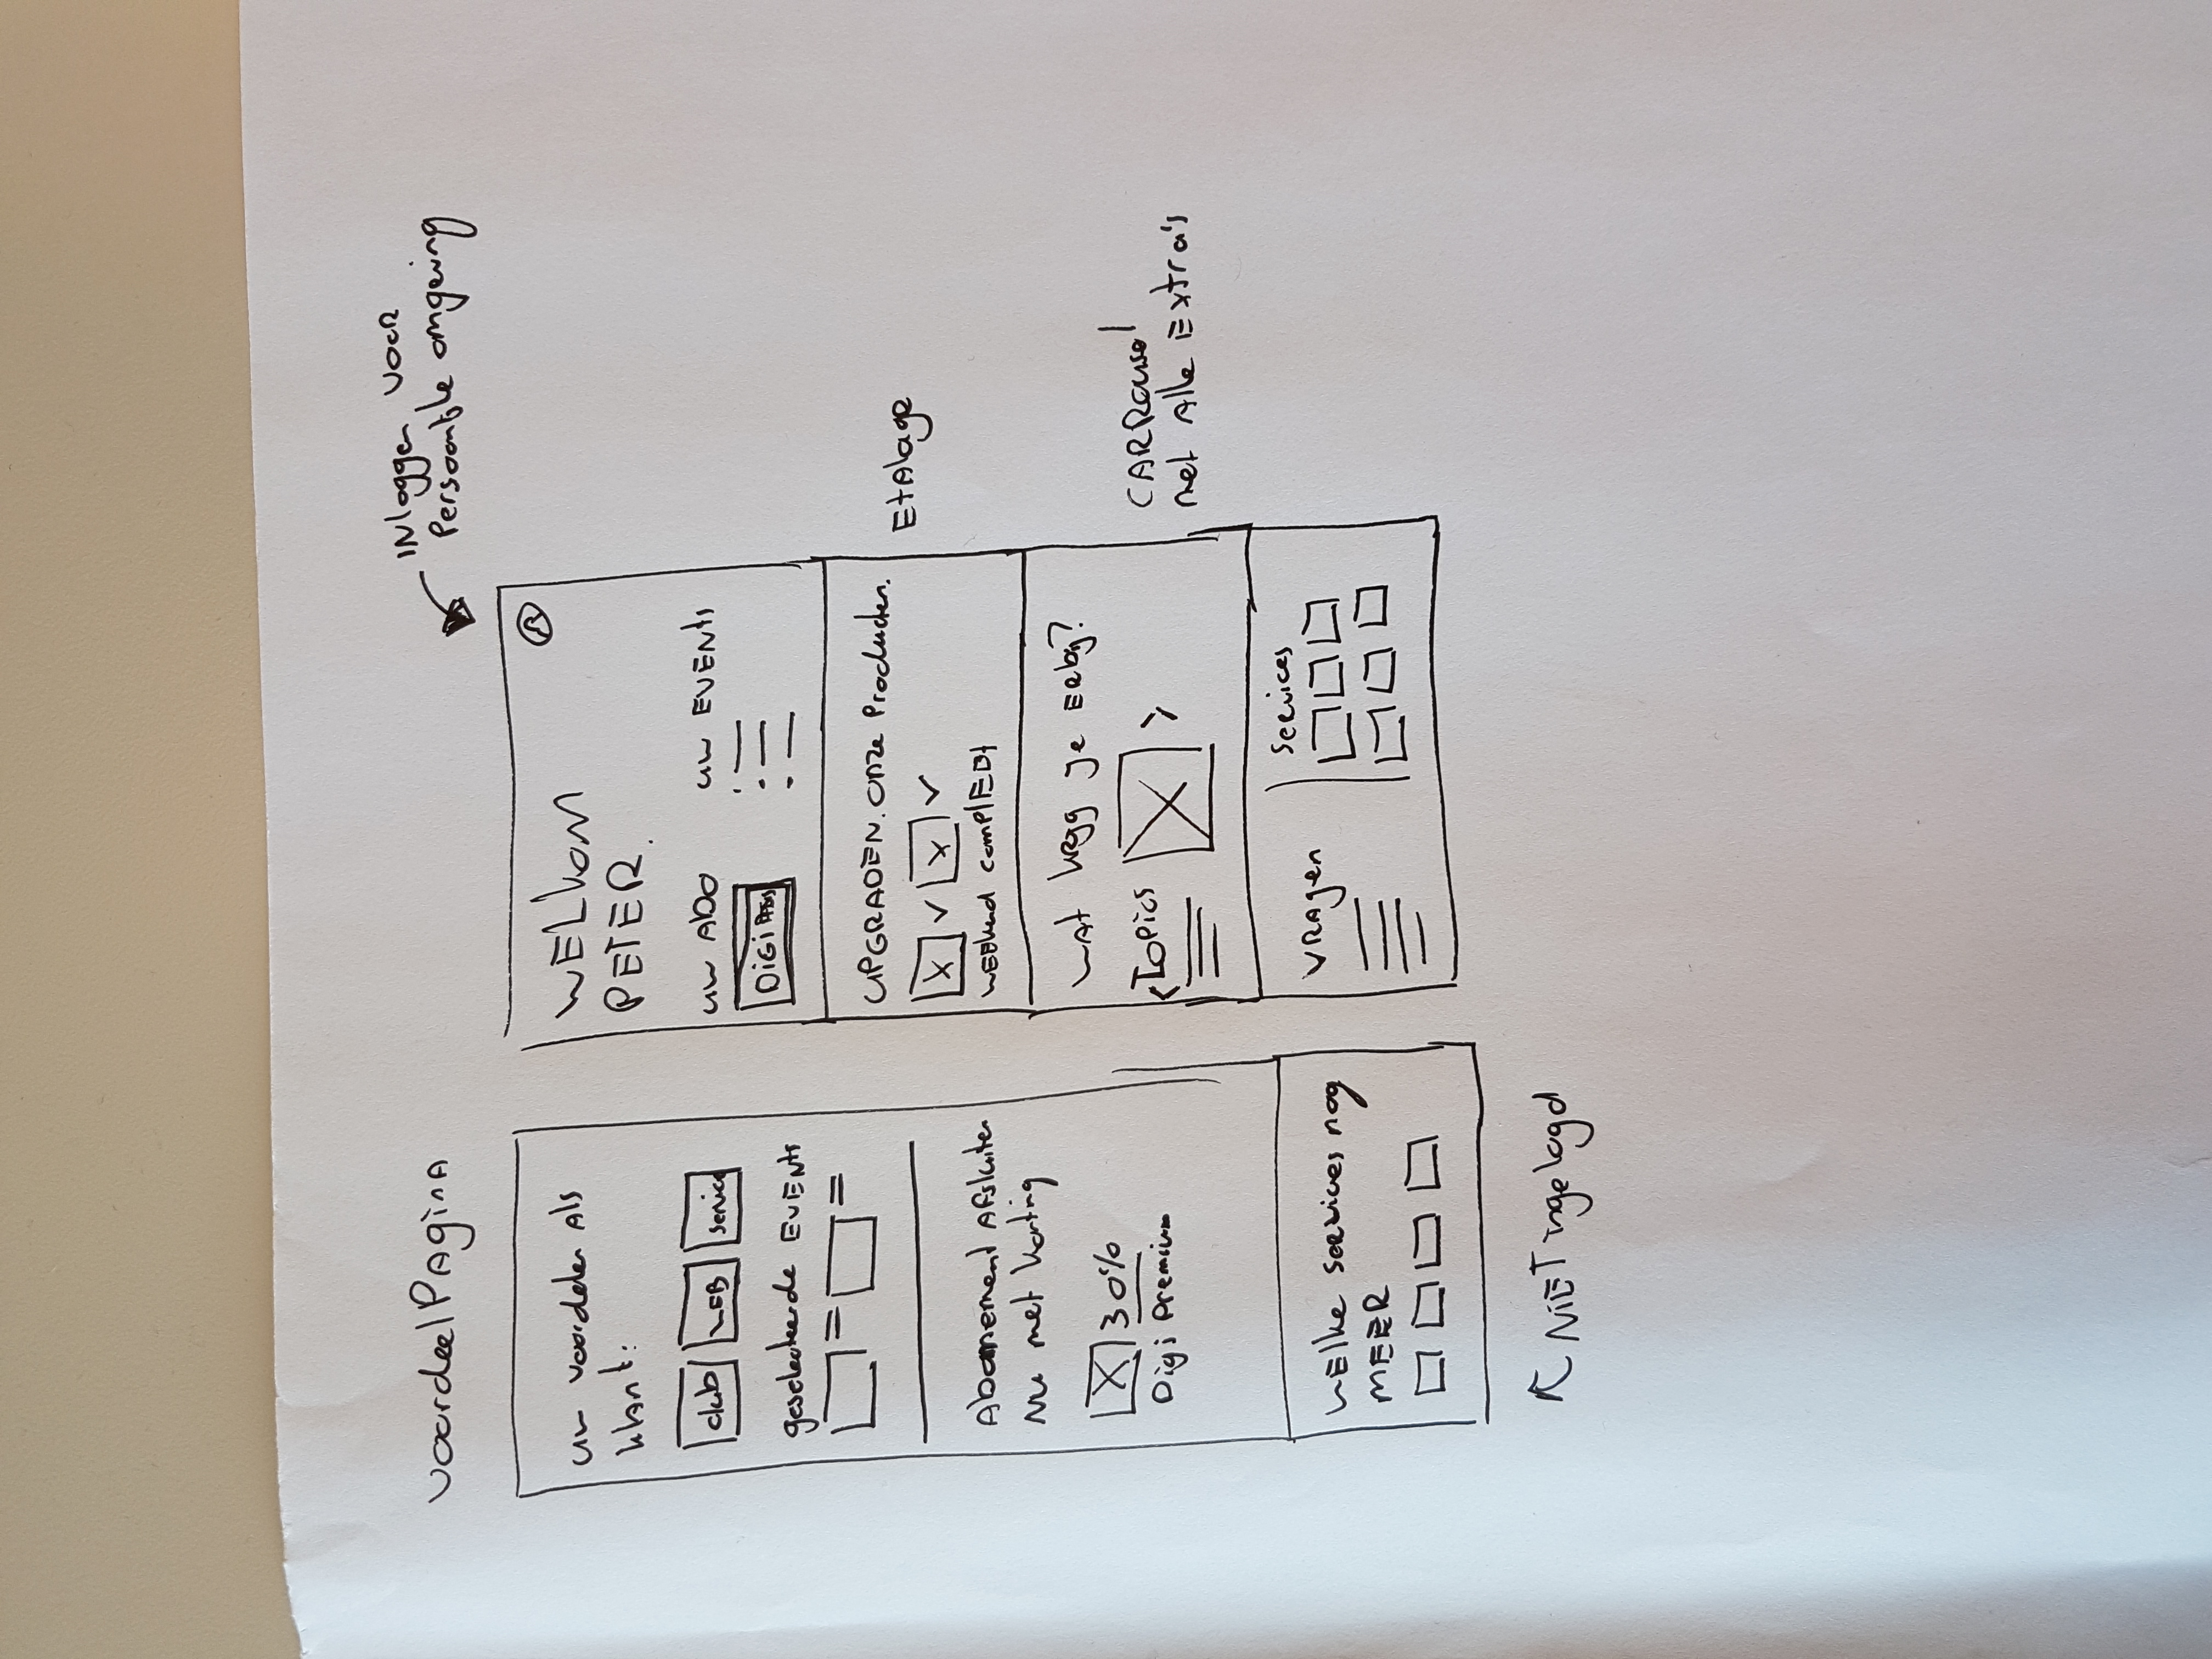 VoordeelPagina
uw voordelen Als
klant:
club WEB Service
geselecteerde EVENts
Abonnement Afsluiten
Nu met korting
30%
Digi Premium
WElke services nog
MEER
NiET ingelogd
INloggen VOOR
Persoonlijke omgeving
WELkom
PETER.
uw Abo
uw EVENts
DiGi Basis
UPGRADEN. Onze Producten.
WEEkend complEEt
EtAlage
WAt krijg je ERbij?
Topics
CARRousel
met Alle Extra's
VRAgen
Services